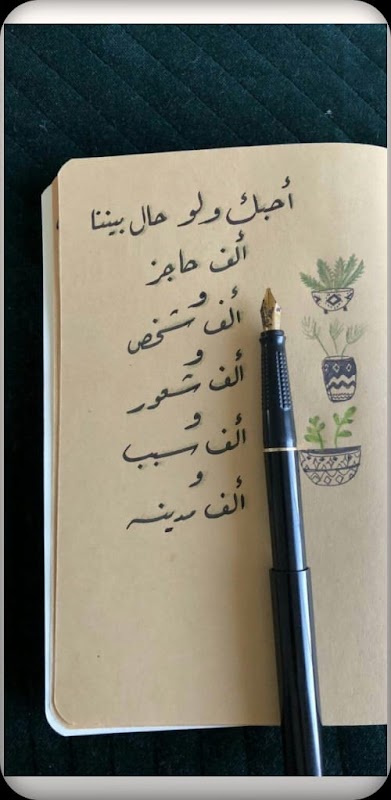 أحبك ولو حال بيننا
ألف حاجز
و
ألف شخص
و
ألف شعور
و
ألف سبب
و
ألف مدينه